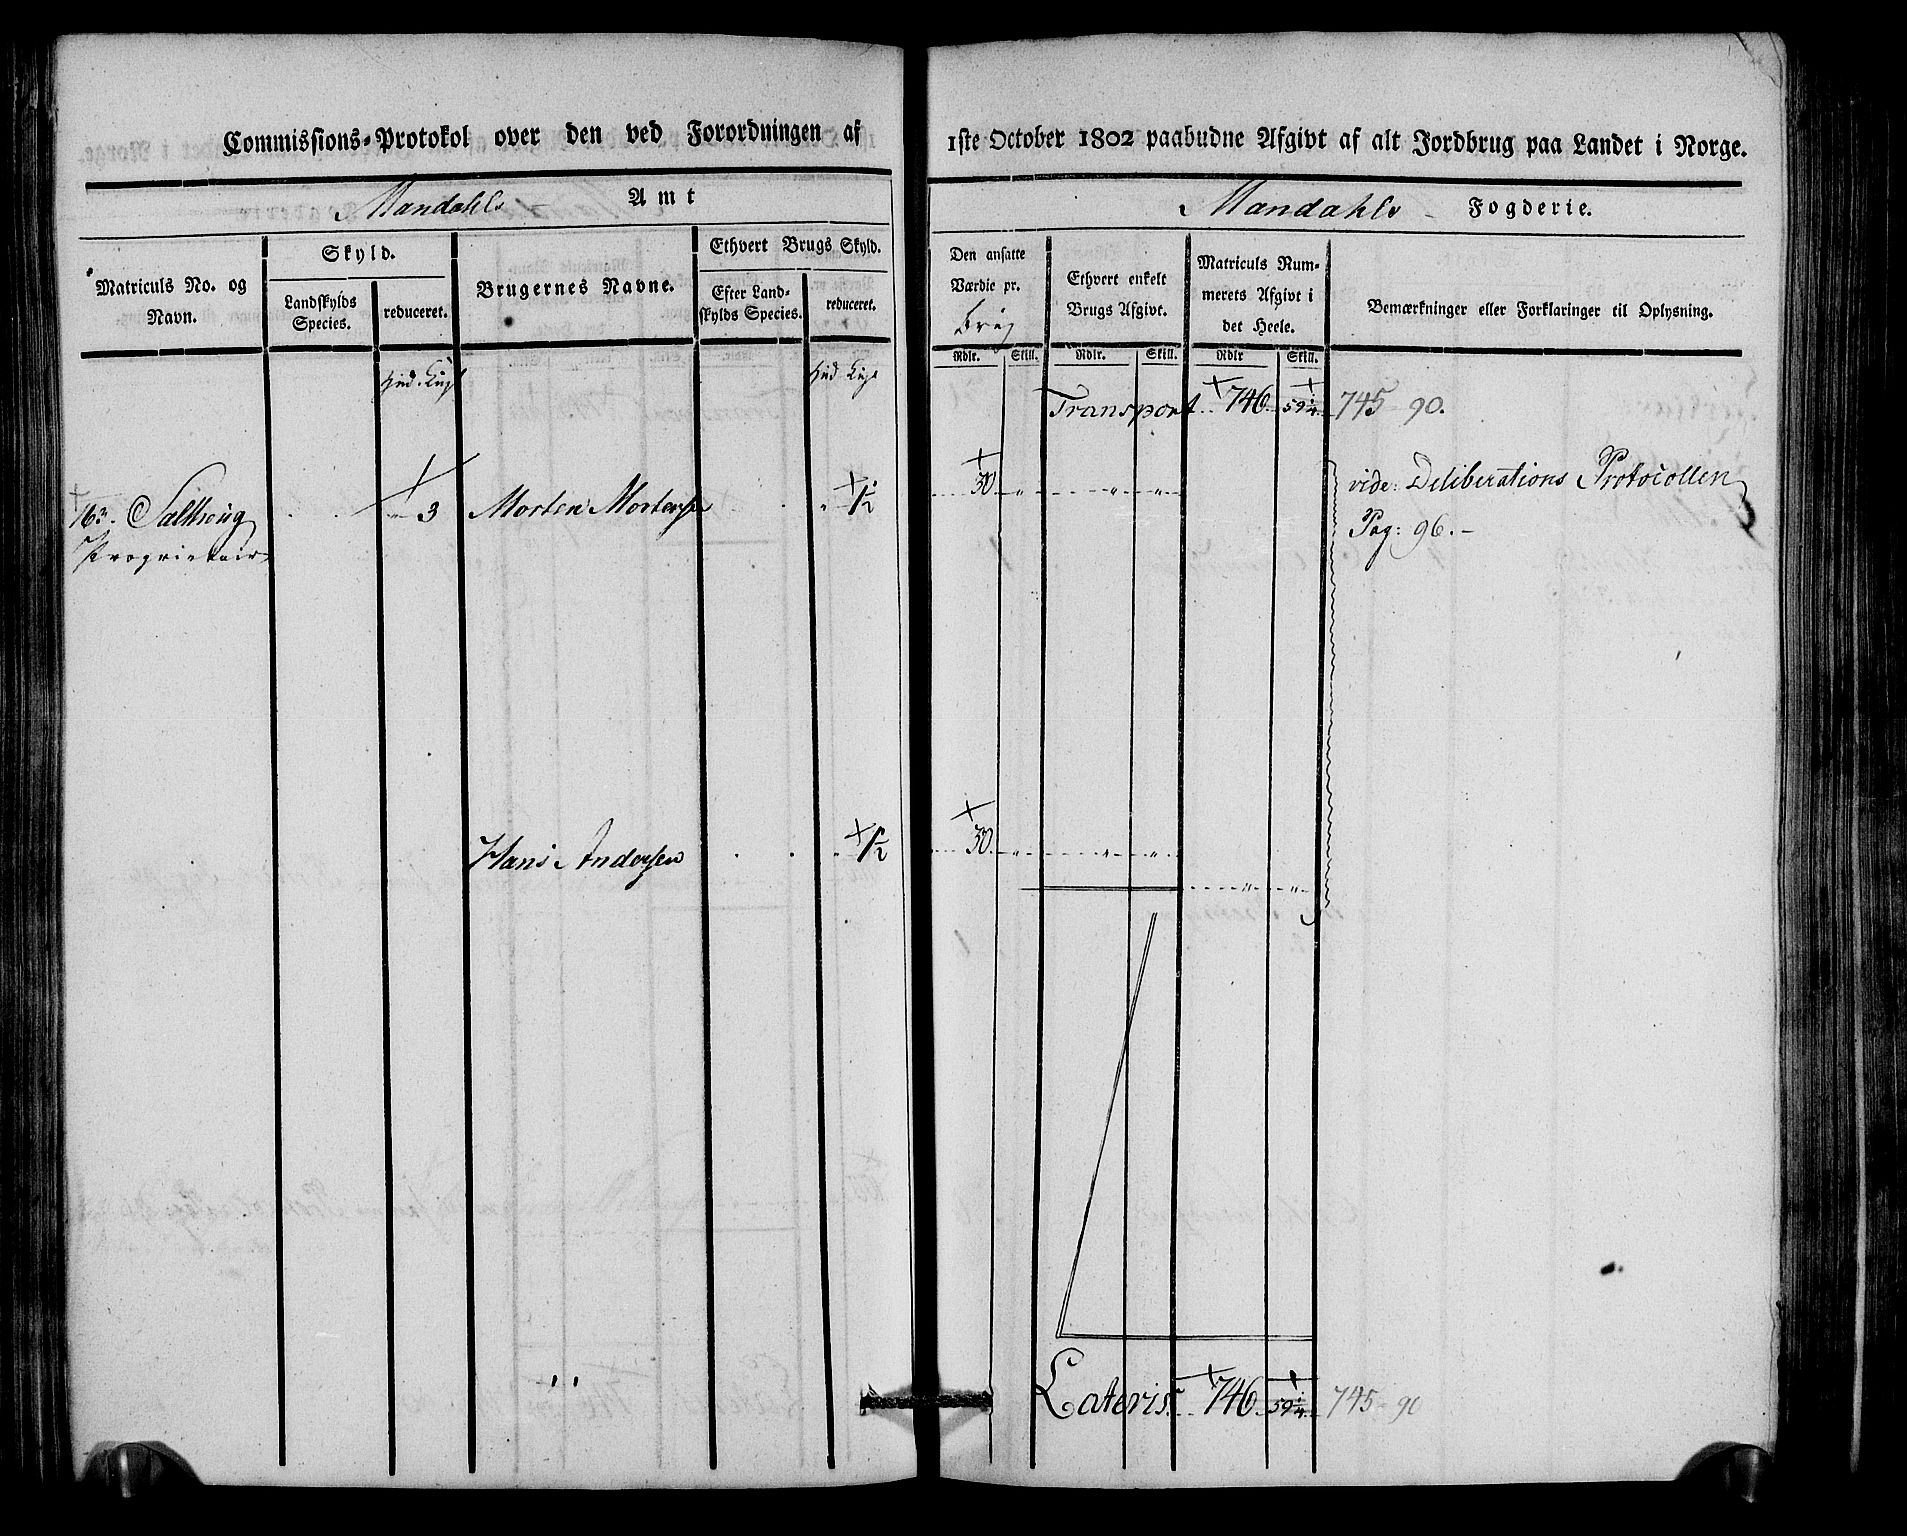 Commissions-Protokol over den ved Forordningen af 1ste October 1802 paabudne Afgivt af alt Jordbrug paa Landet i Norge.
Mandahls Amt
Mandahls Fogderie.
Matriculs No. og Navn.
Skyld.
Landskylds Species.
reduceret.
Brugernes Navne.
Ethvert Brugs Skyld.
Efter Landskylds Species.
reduceret.
Den ansatte Værdie pr. Brug
Ethvert enkelt Brugs Afgivt.
Matriculs Nummerets Afgivt i det Heele.
Bemærkninger eller Forklaringer til Oplysning.
Rdlr. Skill. Rdlr. Skill. Rdlr Skill.
Transport 746 59¼ 745 90.
163. 3 Morten Mortensen 1½ 30 " " " vide: Deliberations Protocollen
Proprietair Pag: 96.
Hans Andersen 1½ 30 " " "
" "
Lateris 746 59¼ 745 - 90